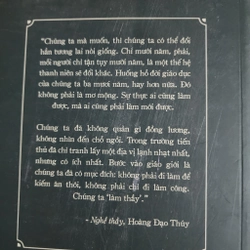 "Chúng ta mà muốn, thì chúng ta có thể đổi
hẳn tương lai nòi giống. Chỉ mười năm, phải,
mỗi người chỉ tận tụy mười năm, là một thế hệ
thanh niên sẽ đổi khác. Huống hồ đời giáo dục
của chúng ta ba mươi năm, hay hơn nữa. Đó
không phải là mơ mộng. Sự thực ai cũng làm
được, mà ai cũng phải làm mới được.
Chúng ta đã không quản gì đồng lương,
không nhìn đến chỗ ngồi. Trong trường tiến
thủ đã chỉ tranh lấy một địa vị lạnh nhạt nhất,
nhưng có ích nhất. Bước vào giáo giới là
chúng ta đã có mục đích: không phải đi làm để
kiếm ăn thôi, không phải chỉ đi làm công.
Chúng ta "làm thầy"."
- Nghề thầy, Hoàng Đạo Thúy